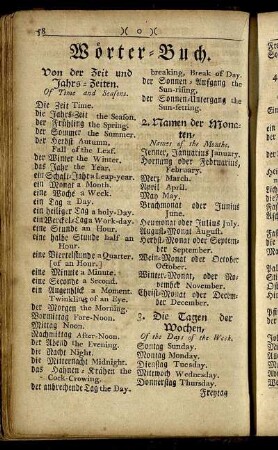 58 )( o )(
Wörter-Buch.
Von der Zeit und
Jahrs-Zeiten.
Of Time and Seasons.
Die Zeit Time.
die Jahrs-Zeit the Season.
der Frühling the Spring.
der Sommer the Summer.
der Herbst Autumn,
Fall of the Leaf.
der Winter the Winter.
das Jahr the Year.
ein Schalt-Jahr a Leap-year.
ein Monat a Month.
eine Woche a Week.
ein Tag a Day.
ein heiliger Tag a holy-Day.
ein Werckel-Tag a Work-day.
eine Stunde an Hour.
eine halbe Stunde half an
Hour.
eine Viertelstunde a Quarter.
[of an Hour.]
eine Minute a Minute.
eine Secunde a Second.
ein Augenblick a Moment.
Twinkling of an Eye.
der Morgen the Morning.
Vormittag Fore-Noon.
Mittag Noon.
Nachmittag After-Noon.
der Abend the Evening.
die Nacht Night.
die Mitternacht Midnight.
das Hahnen-Krähen the
Cock-Crowing.
der anbrechende Tag the Day.
breaking, Break of Day.
der Sonnen-Aufgang the
Sun-rising.
der Sonnen-Untergang the
Sun-setting.
2. Namen der Mona-
ten.
Names of the Months.
Jenner, Januarius January.
Hornung oder Februarius,
February.
Merz March.
April April.
May May.
Brachmonat oder Junius
June.
Heumonat oder Julius July.
August-Monat August.
Herbst-Monat oder Septem-
ber September.
Wein-Monat oder October
October.
Winter-Monat, oder No-
vember November.
Christ-Monat oder Decem-
ber December.
3. Die Tagen der
Wochen,
Of the Days of the Week.
Sontag Sunday.
Montag Monday.
Dienstag Tuesday.
Mittwoch Wednesday.
Donnerstag Thursday.
Freytag